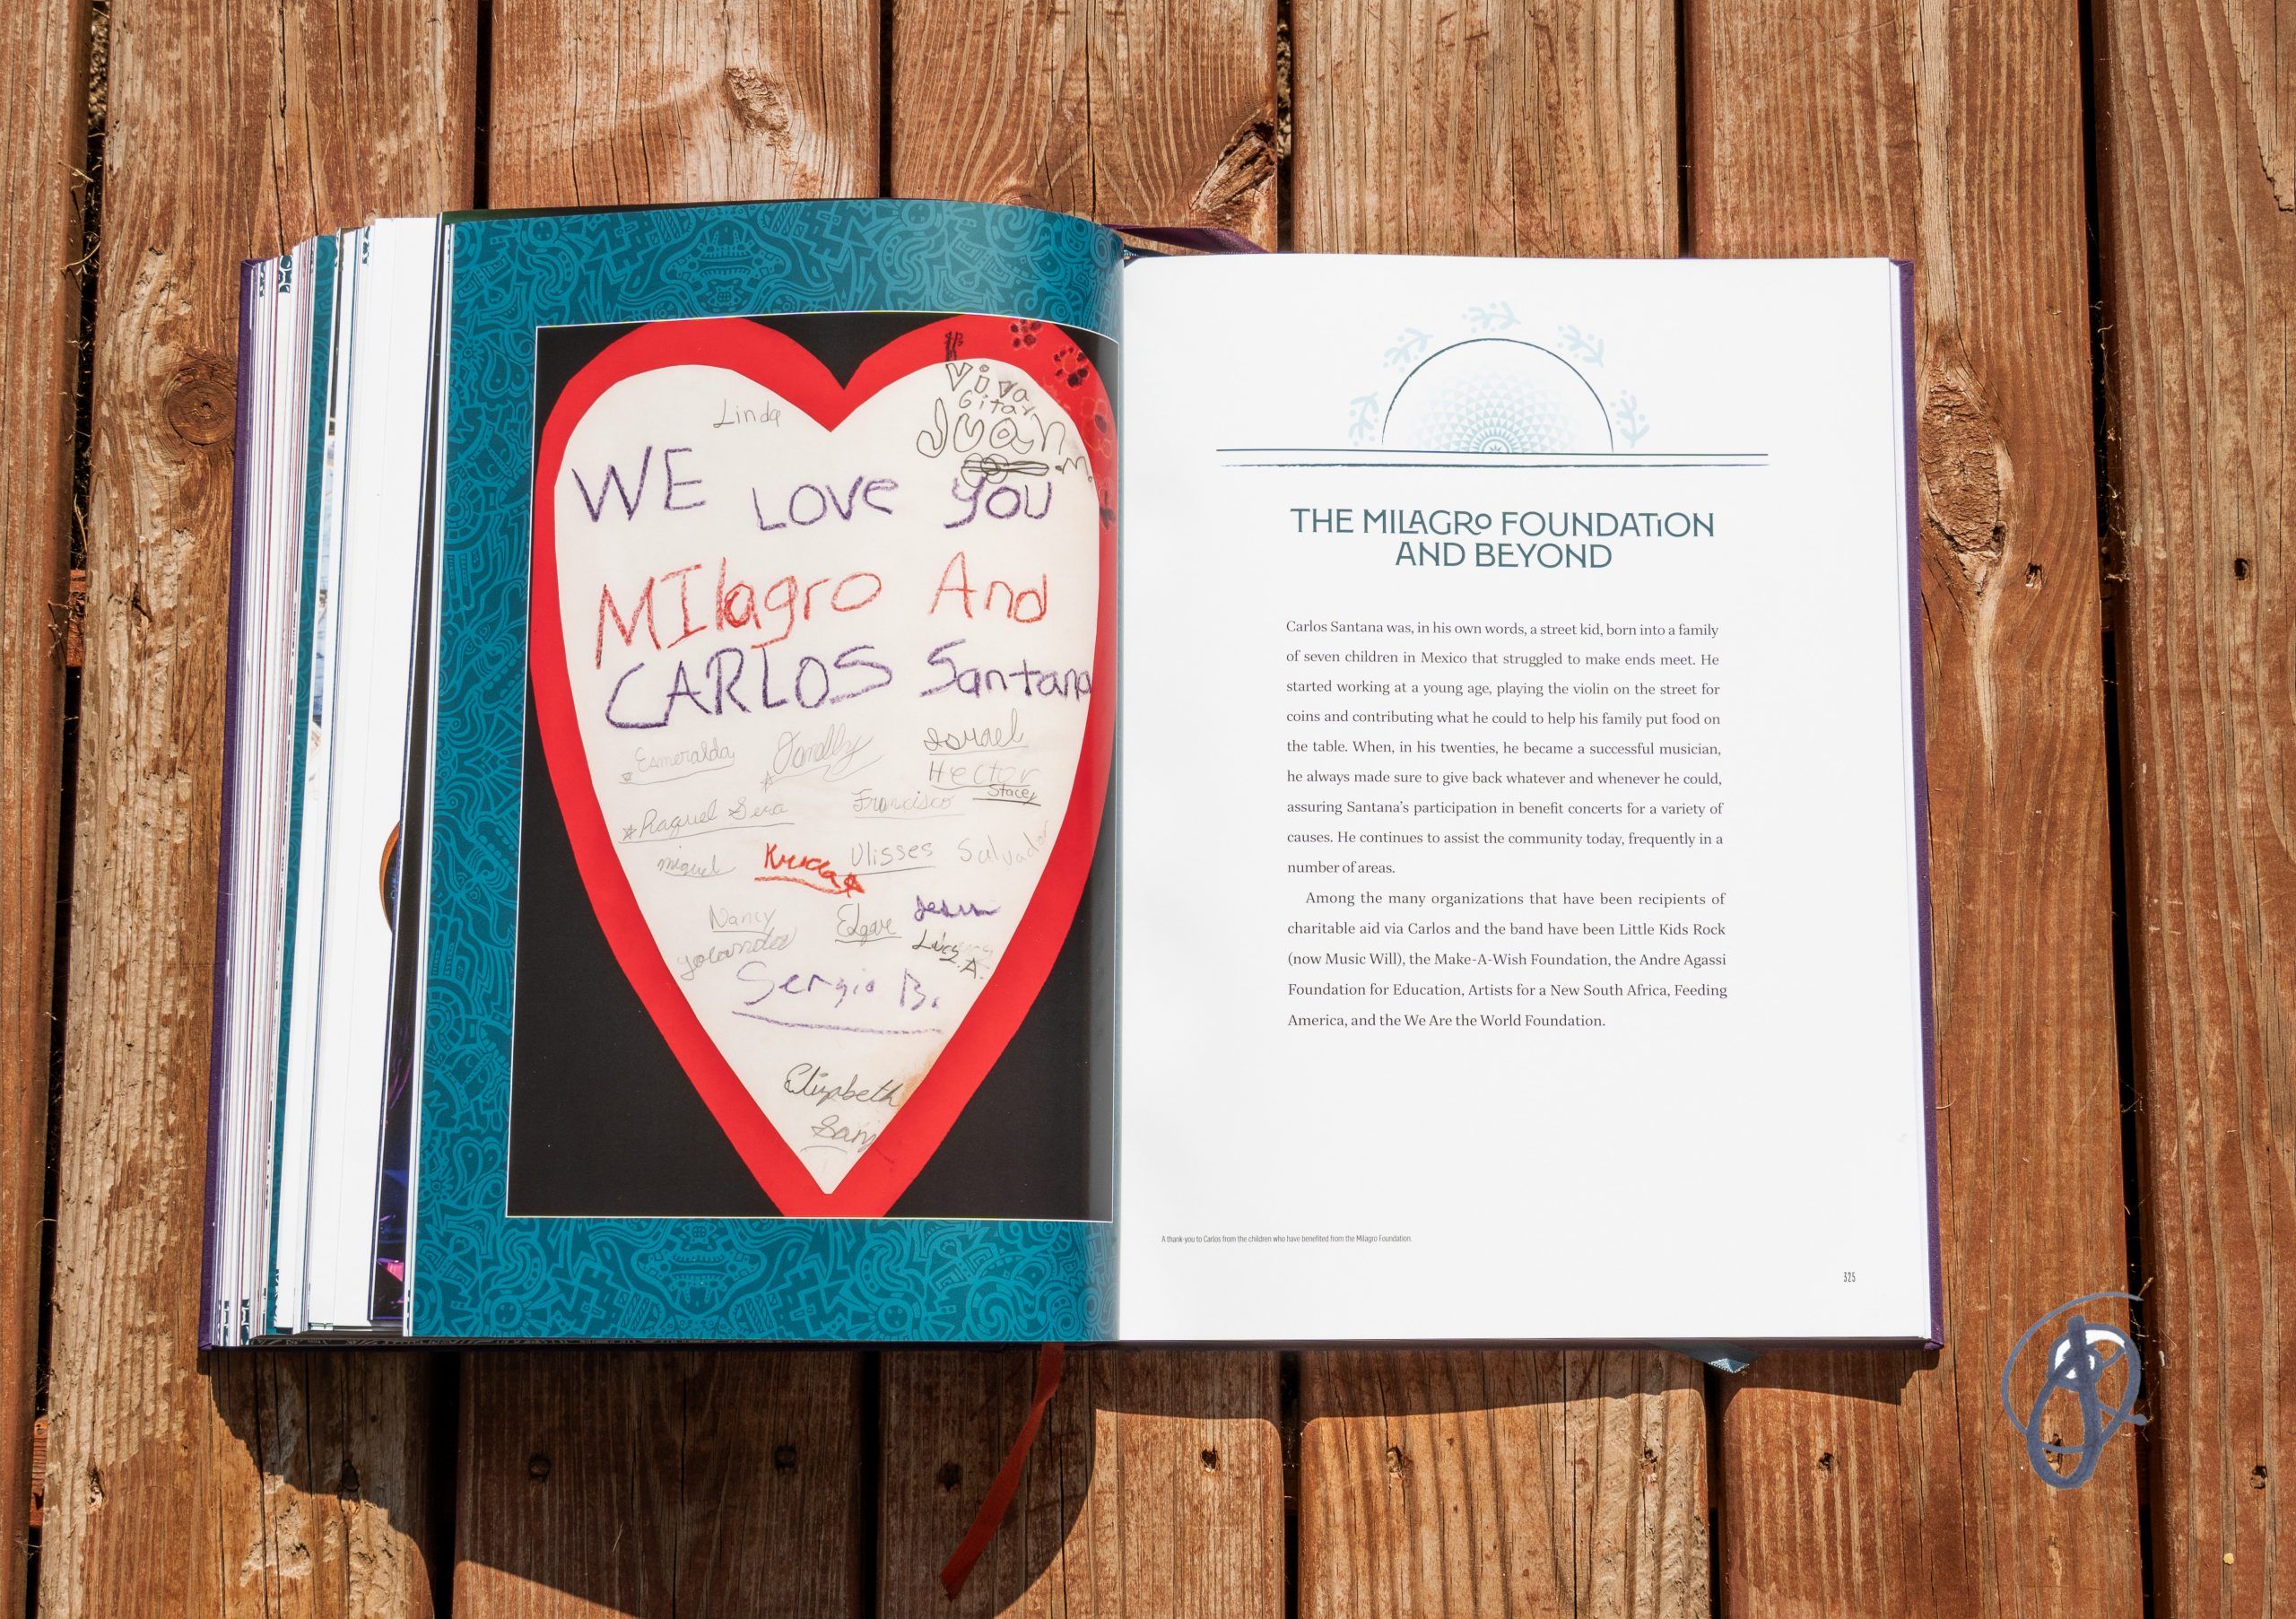 Linda
Viva
Gitar
Juan m.
WE LOVE YOU
MIlagro And
CARLOS Santana
Esmeralda
Israel
Hector
Stacey
Raquel
Francisco
miguel
Ulisses Salvador
Nancy
Edgar
yolanda
Sergio B.
Elizabeth
THE MILAGRO FOUNDATION
AND BEYOND
Carlos Santana was, in his own words, a street kid, born into a family
of seven children in Mexico that struggled to make ends meet. He
started working at a young age, playing the violin on the street for
coins and contributing what he could to help his family put food on
the table. When, in his twenties, he became a successful musician,
he always made sure to give back whatever and whenever he could,
assuring Santana's participation in benefit concerts for a variety of
causes. He continues to assist the community today, frequently in a
number of areas.
Among the many organizations that have been recipients of
charitable aid via Carlos and the band have been Little Kids Rock
(now Music Will), the Make-A-Wish Foundation, the Andre Agassi
Foundation for Education, Artists for a New South Africa, Feeding
America, and the We Are the World Foundation.
A thank-you to Carlos from the children who have benefited from the Milagro Foundation.
325